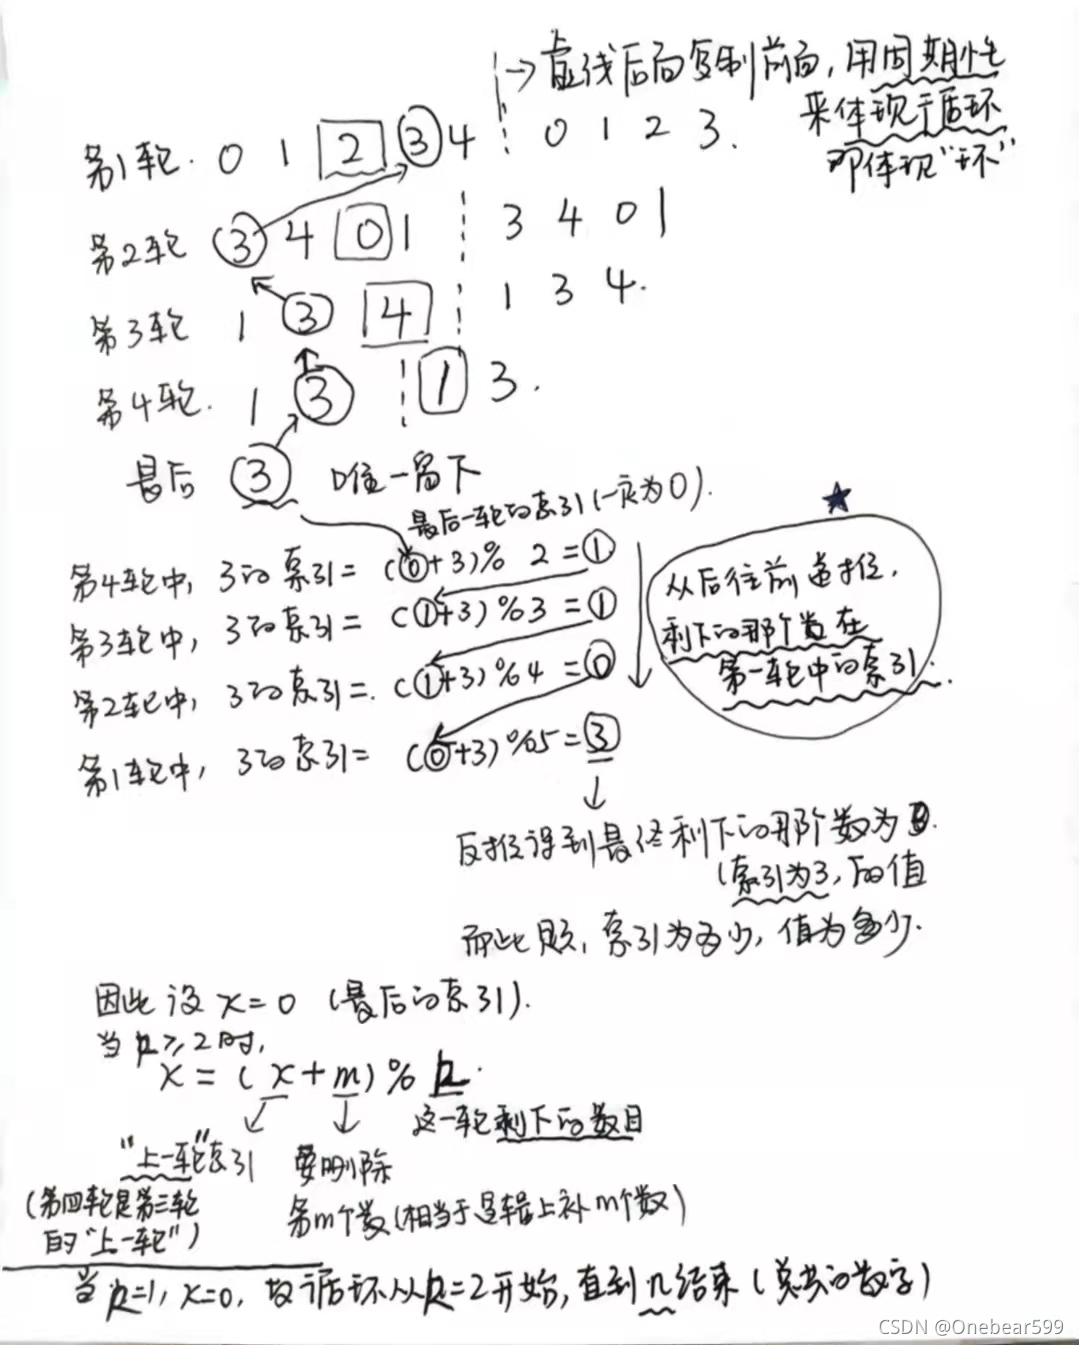 →虚线后面复制前面，用周期性
来体现循环
即体现“环”
第1轮. 0 1 2 3 4 0 1 2 3.
第2轮 3 4 0 1 3 4 0 1
第3轮 1 3 4 1 3 4.
第4轮. 1 3 1 3.
最后 3 唯一留下
最后一轮的索引(一定为0).
第4轮中, 3的索引= (0+3)% 2 = 1
第3轮中, 3的索引= (1+3)%3 = 1
第2轮中, 3的索引=. (1+3)%4 = 0
第1轮中, 3的索引= (0+3)%5 = 3
从后往前递推,
剩下的那个数在
第一轮中的索引.
反推得到最终剩下的那个数为3.
(索引为3, 的值
而此题, 索引为多少, 值为多少.
因此设 x = 0 (最后的索引).
当k≥2时,
x = (x+m)% k.
这一轮剩下的数目
“上一轮”索引 要删除
(第四轮是第三轮
的“上一轮”)
第m个数(相当于逻辑上补m个数)
当k=1, x=0, 故循环从k=2开始, 直到n结束(总共的数字)
CSDN @Onebear599